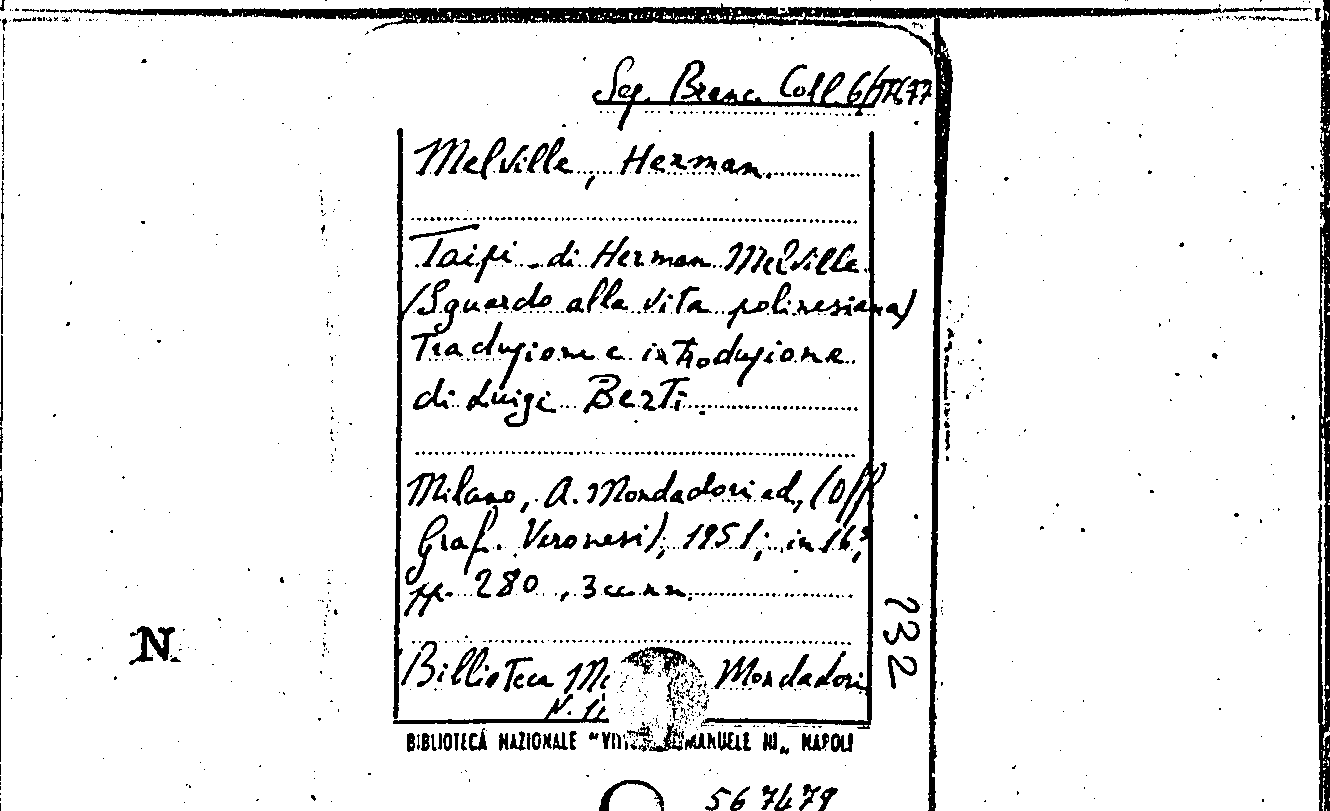 Seg. Branc. Coll. 6/
Melville, Herman.
Taipi di Herman Melville
(Sguardo alla vita polinesiana)
Traduzione e introduzione
di Luigi Berti.
Milano, A. Mondadori ed, (Off
Graf. Veronesi), 1951; in 16°,
pp. 280, 3 cc.nn.
Biblioteca Mondadori
N.
232
N
BIBLIOTECA NAZIONALE NAPOLI
567479